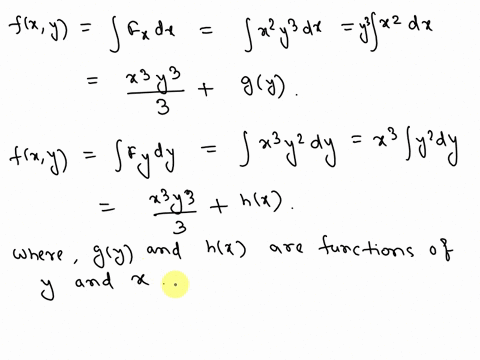 f(x,y) = ∫ Fx dx = ∫ x² y³ dx = y³∫ x² dx
= x³y³/3 + g(y).
f(x,y) = ∫ Fy dy = ∫ x³y² dy = x³ ∫ y² dy
= x³y³/3 + h(x).
where, g(y) and h(x) are functions of
y and x ..